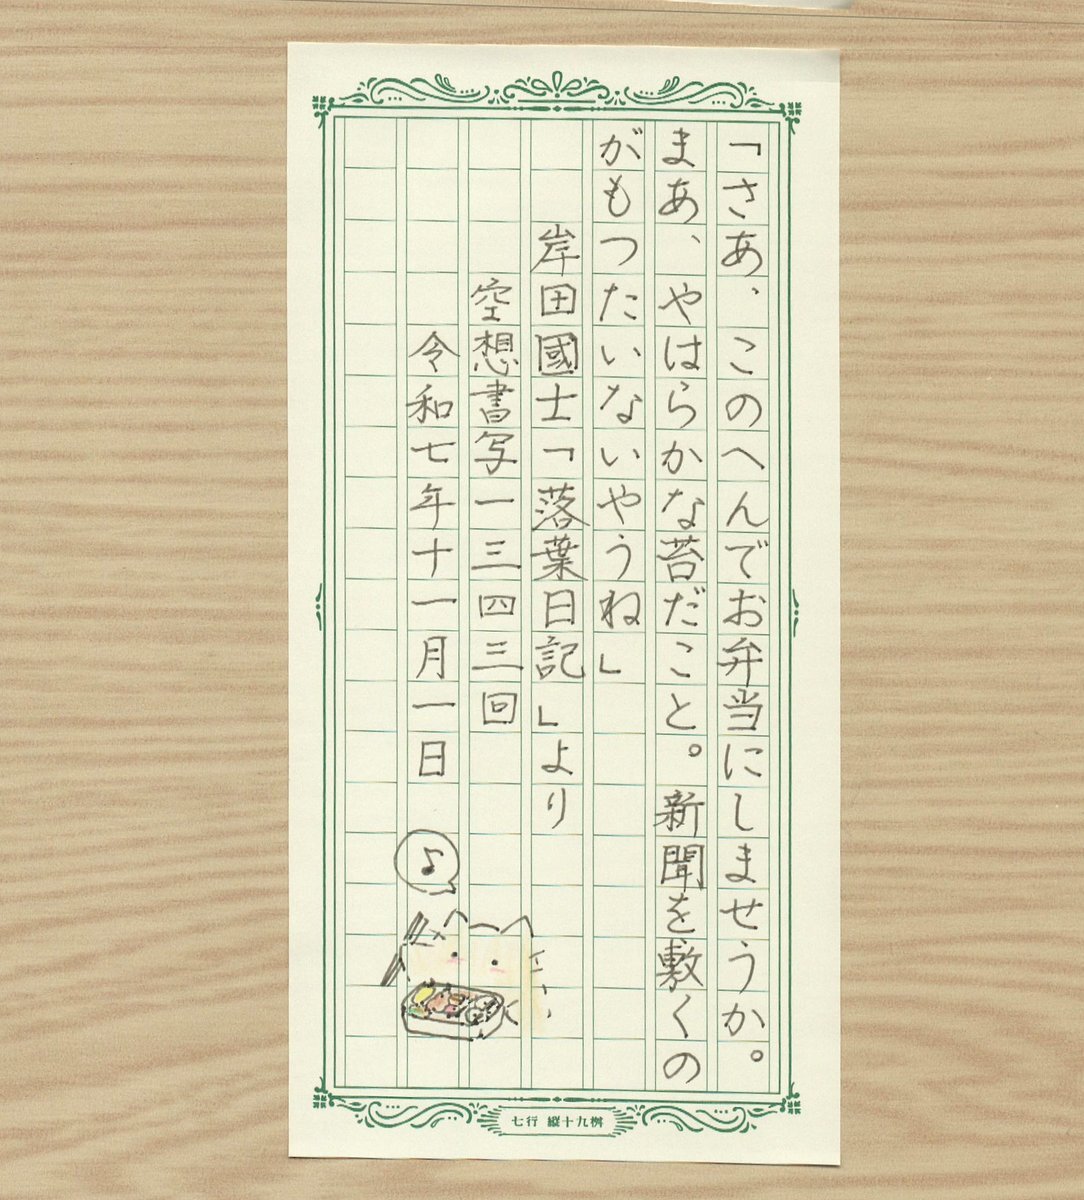 「さあ、このへんでお弁当にしませうか。
まあ、やはらかな苔だこと。新聞を敷くの
がもつたいないやうね」
岸田國士「落葉日記」より
空想書写一三四三回
令和七年十一月一日
♪
七行 縦十九桝